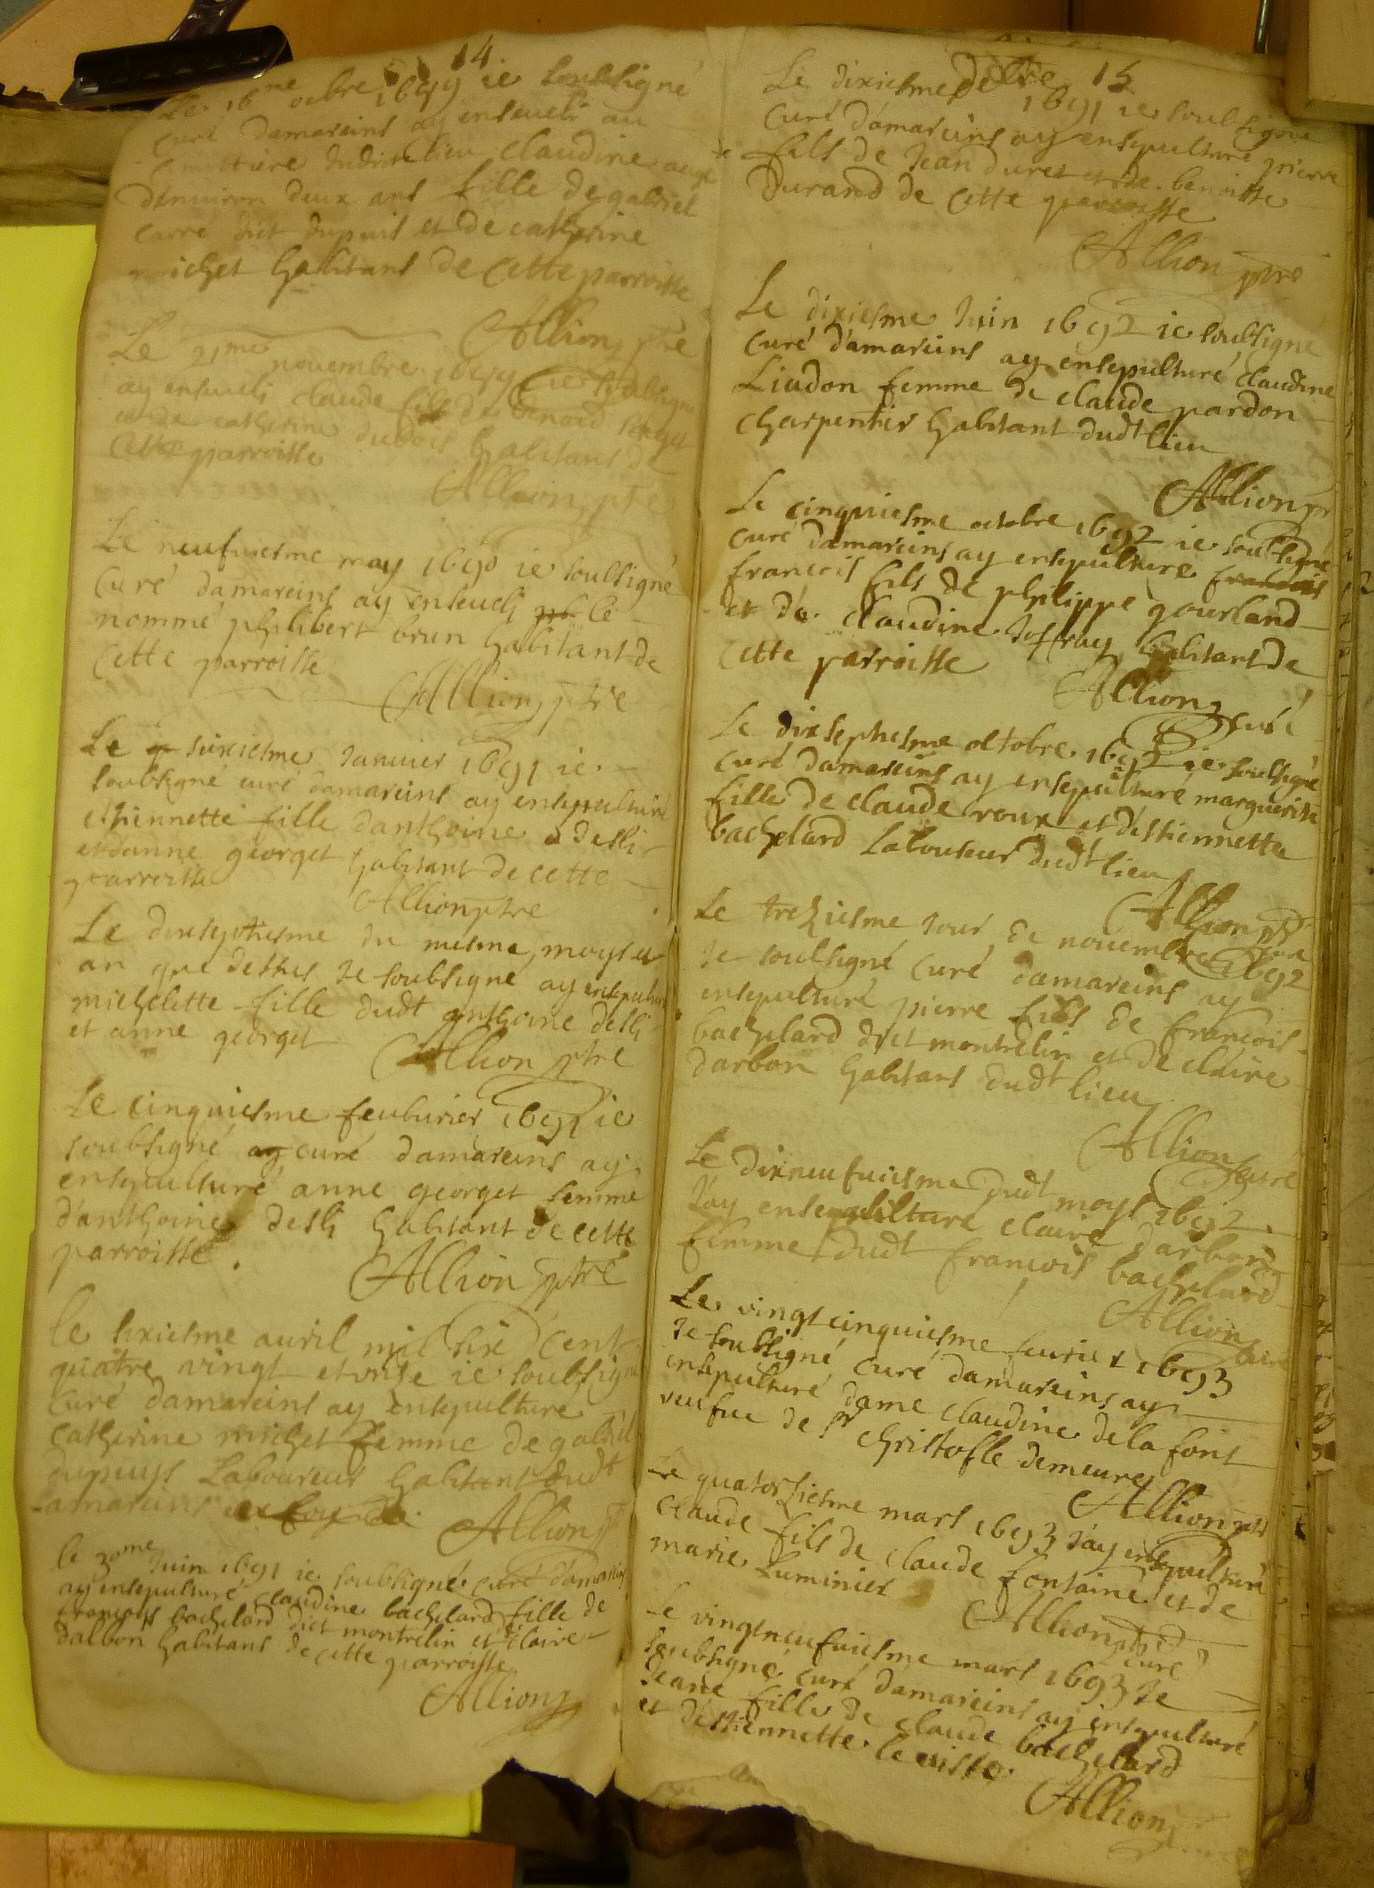 14
Le 16me octbre 1689 ie soubsigné
curé damareins ay enseueli au
cimittiere dudit lieu claudine aagé
denuiron deux ans fille de gabriel
carré dict dupuis et de catherine
michet habitans de cette parroisse
Allion ptre
Le 21me novembre ie soubsigné
ay enseueli claude fils de benoid
et de catherine dubois habitans de
cette parroisse
Allion ptre
Le neufuiesme may 1690 ie soubsigné
curé damareins ay enseueli le
nommé philibert brun habitant de
cette parroisse
Allion ptre
Le sixiesme Januier 1691 ie
soubsigné curé damareins ay ensepulturé
estiennette fille danthoine desli
et danne georget habitant de cette
parroisse
Allion ptre
Le dixseptiesme du mesme moys et
an que dessus Je soubsigné ay ensepulturé
michelette fille dudt anthoine desli
et anne georget
Allion ptre
Le cinquiesme feuburier 1691 ie
soubsigné ay curé damareins ay
ensepulturé anne georget femme
d'anthoine desli habitant de cette
parroisse.
Allion ptre
Le sixiesme auril mil six cent
quatre vingt et onse ie soubsigné
curé damareins ay ensepulture
catherine michet femme de gabriel
dupuys Laboureur habitant dudt
amareins
Allion ptre
le 30me Juin 1691 ie soubsigné curé damareins
ay ensepulturé claudine bachelard fille de
françois bachelard dict montrelin et claire
dalbon habitans de cette parroisse
Allion
15
Le dixiesme 1691 ie soubsigné
curé d'amareins ay ensepulturé pierre
fils de Jean duret et de benoiste
Durand de cette parroisse
Allion ptre
Le dixiesme Juin 1692 ie soubsigné
curé d'amareins ay ensepulturé claudine
Liudon femme de claude pardon
charpentier habitant dudt lieu
Allion ptr
Le cinquiesme octobre 1692 ie soubsigné
curé damareins ay ensepulture francois
francois fils de philippe gourland
et de claudine Joffray habitant de
cette parroisse
Allion curé
Le dixseptiesme octobre 1692 ie soubsigné
curé damareins ay ensepulturé marguerite
fille de claude roux et d'estiennette
bachelard Laboureur dudt lieu
Allion ptre
Le treziesme Jour de nouembre 1692
Je soubsigné curé damareins ay
ensepulturé pierre fils de françois
bachelard dict montrelin et de claire
darbon habitans dudt lieu
Allion curé
Le dixneufuiesme dudt moys 1692
J'ay ensepulturé claire darbon
femme dudt françois bachelard
Allion curé
Le vingt cinquiesme feurier 1693
Je soubsigné curé damareins ay
ensepulturé dame claudine de la font
veufue de sr christofle demeure
Allion ptre
Le quatorsiesme mars 1693 J'ay ensepulturé
claude fils de claude fontaine et de
marie Luminier
Allion ptre curé
Le vingtneufuiesme mars 1693 Je
soubsigné curé damareins ay ensepulturé
Jeane fille de claude bachelard
et d'estiennette
Allion